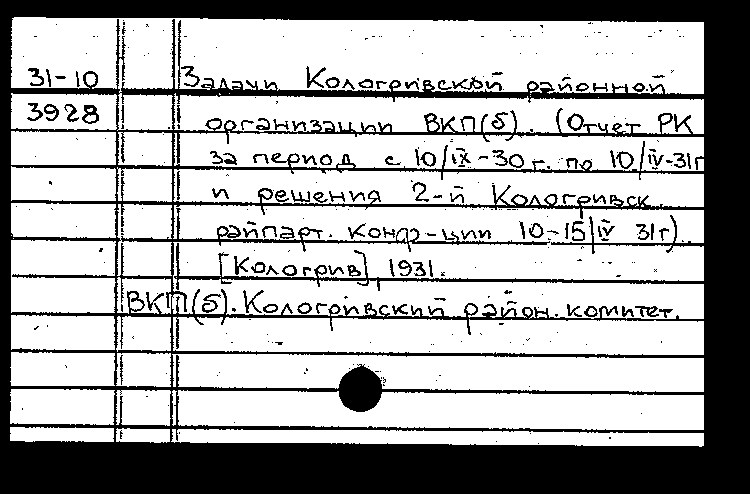 31-10 Задачи Кологривской районной
3928 организации ВКП(б). (Отчет РК
за период с 10/IX-30 г. по 10/IV-31г
и решения 2-й Кологривск.
райпарт. конф-ции 10-15/IV 31г)
[Кологрив], 1931.
ВКП(б). Кологривский район. комитет.